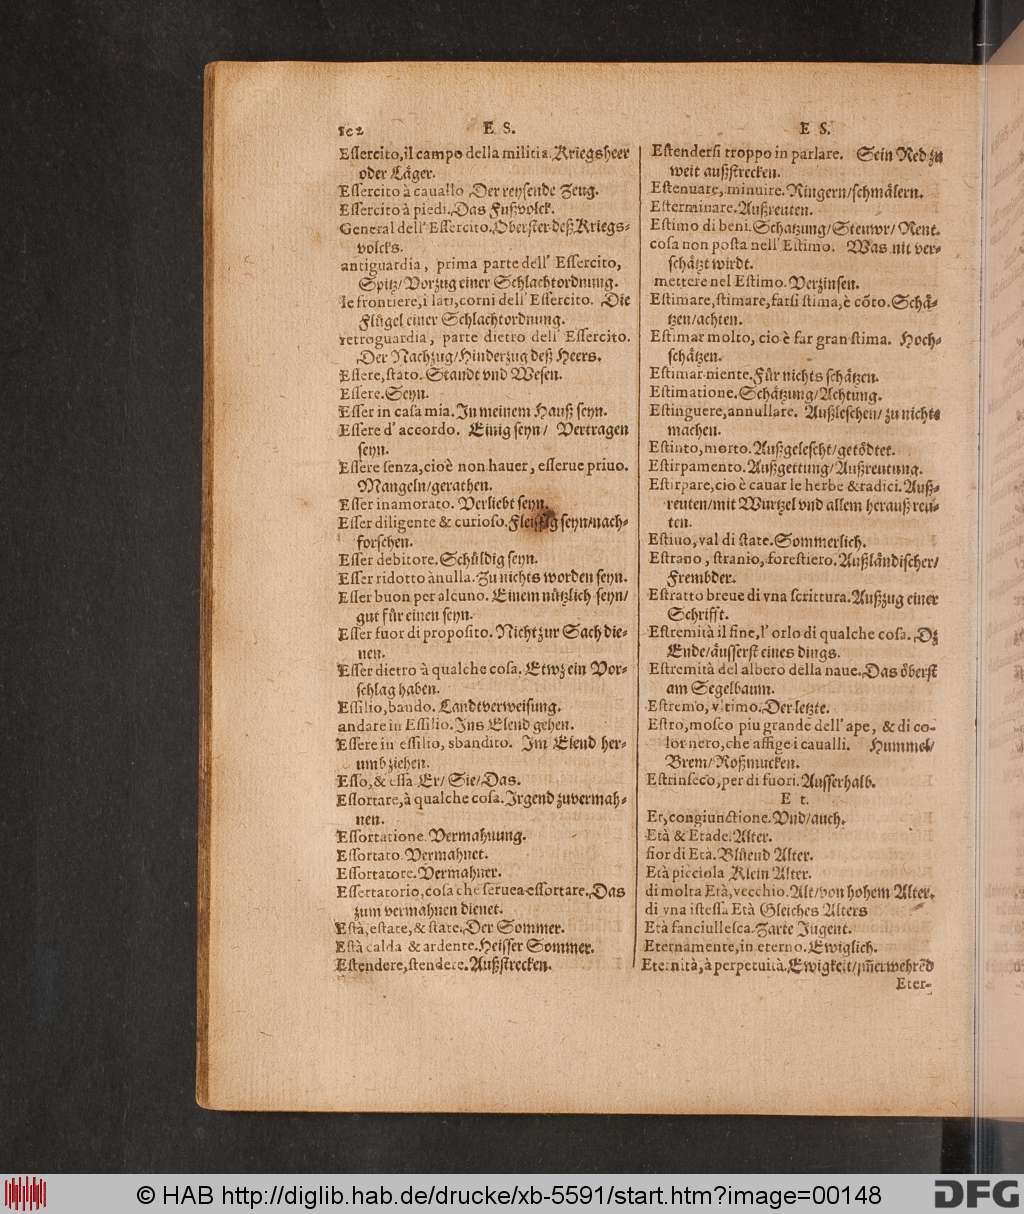 102
E S.
Eſſercito,il campo della militia.Kriegsheer
oder Läger.
Eſſercito à cauallo Der reyſende Zeug.
Eſſercito à piedi.Das Fußvolck.
General dell' Eſſercito.Oberſter deß Kriegs-
volcks.
antiguardia, prima parte dell' Eſſercito,
Spitz/Vorzug einer Schlachtordnung.
le frontiere,i lati,corni dell' Eſſercito. Die
Flügel einer Schlachtordnung.
retroguardia, parte dietro dell' Eſſercito.
Der Nachzug/Hinderzug deß Heers.
Eſſere,ſtato. Standt vnd Weſen.
Eſſere.Seyn.
Eſſer in caſa mia.In meinem Hauß ſeyn.
Eſſere d' accordo. Einig ſeyn/ Vertragen
ſeyn.
Eſſere ſenza,cioè non hauer, eſſerue priuo.
Mangeln/gerathen.
Eſſer inamorato. Verliebt ſeyn.
Eſſer diligente & curioſo.Fleiſſig ſeyn/nach-
forſchen.
Eſſer debitore.Schüldig ſeyn.
Eſſer ridotto ànulla.Zu nichts worden ſeyn.
Eſſer buon per alcuno. Einem nützlich ſeyn/
gut für einen ſeyn.
Eſſer fuor di propoſito. Nicht zur Sach die-
nen.
Eſſer dietro à qualche coſa. Etwz ein Vor-
ſchlag haben.
Eſſilio,bando. Landtverweiſung.
andare in Eſſilio.Ins Elend gehen.
Eſſere in eſſilio, sbandito. Im Elend her-
umb ziehen.
Eſſo,& eſſa Er/ Sie/Das.
Eſſortare,à qualche coſa.Irgend zuvermah-
nen.
Eſſortatione.Vermahnung.
Eſſortato.Vermahnet.
Eſſortatore.Vermahner.
Eſſertatorio,coſa che ſeruea eſſortare.Das
zum vermahnen dienet.
Eſtà,eſtate,& ſtate.Der Sommer.
Eſtà calda & ardente.Heiſſer Sommer.
Eſtendere,ſtendere.Außſtrecken.
E S.
Eſtenderſi troppo in parlare. Sein Red zu
weit außſtrecken.
Eſtenuare,minuire.Ringern/ſchmälern.
Eſterminare.Außreuten.
Eſtimo di beni.Schatzung/Steuwr/ Rent.
coſa non poſta nell' Eſtimo. Was nit ver-
ſchätzt wirdt.
mettere nel Eſtimo.Verzinſen.
Eſtimare,ſtimare,farſi ſtima,è cōto.Schä-
tzen/achten.
Eſtimar molto, cio è far gran ſtima. Hoch-
ſchätzen.
Eſtimar niente.Für nichts ſchätzen.
Eſtimatione.Schätzung/Achtung.
Eſtinguere,annullare. Außleſchen/ zu nichts
machen.
Eſtinto,morto.Außgeleſcht/getödtet.
Eſtirpamento.Außgettung/Außreutung.
Eſtirpare,cio è cauar le herbe & radici.Auß-
reuten/mit Wurtzel vnd allem herauß reu-
ten.
Eſtiuo,val di ſtate.Sommerlich.
Eſtrano, ſtranio,foreſtiero.Außländiſcher/
Frembder.
Eſtratto breue di vna ſcrittura.Außzug einer
Schrifft.
Eſtremità il fine,l' orlo di qualche coſa. Dz
Ende/äuſſerſt eines dings.
Eſtremità del albero della naue.Das öberſt
am Segelbaum.
Eſtremo, vltimo.Der letzte.
Eſtro,moſco piu grande dell' ape, & di co-
lor nero,che affige i caualli. Hummel/
Brem/Roßmucken.
Eſtrinſeco,per di fuori.Auſſerhalb.
E t.
Et,congiunctione.Vnd/auch.
Età & Etade.Alter.
fior di Età.Blüend Alter.
Età picciola Klein Alter.
di molta Età,vecchio.Alt/von hohem Alter.
di vna iſteſſa Età Gleiches Alters
Età fanciulleſca.Zarte Jugent.
Eternamente,in eterno.Ewiglich.
Eternità,à perpetuità.Ewigkeit/jm̃erwehrēd
Eter-
© HAB http://diglib.hab.de/drucke/xb-5591/start.htm?image=00148
DFG